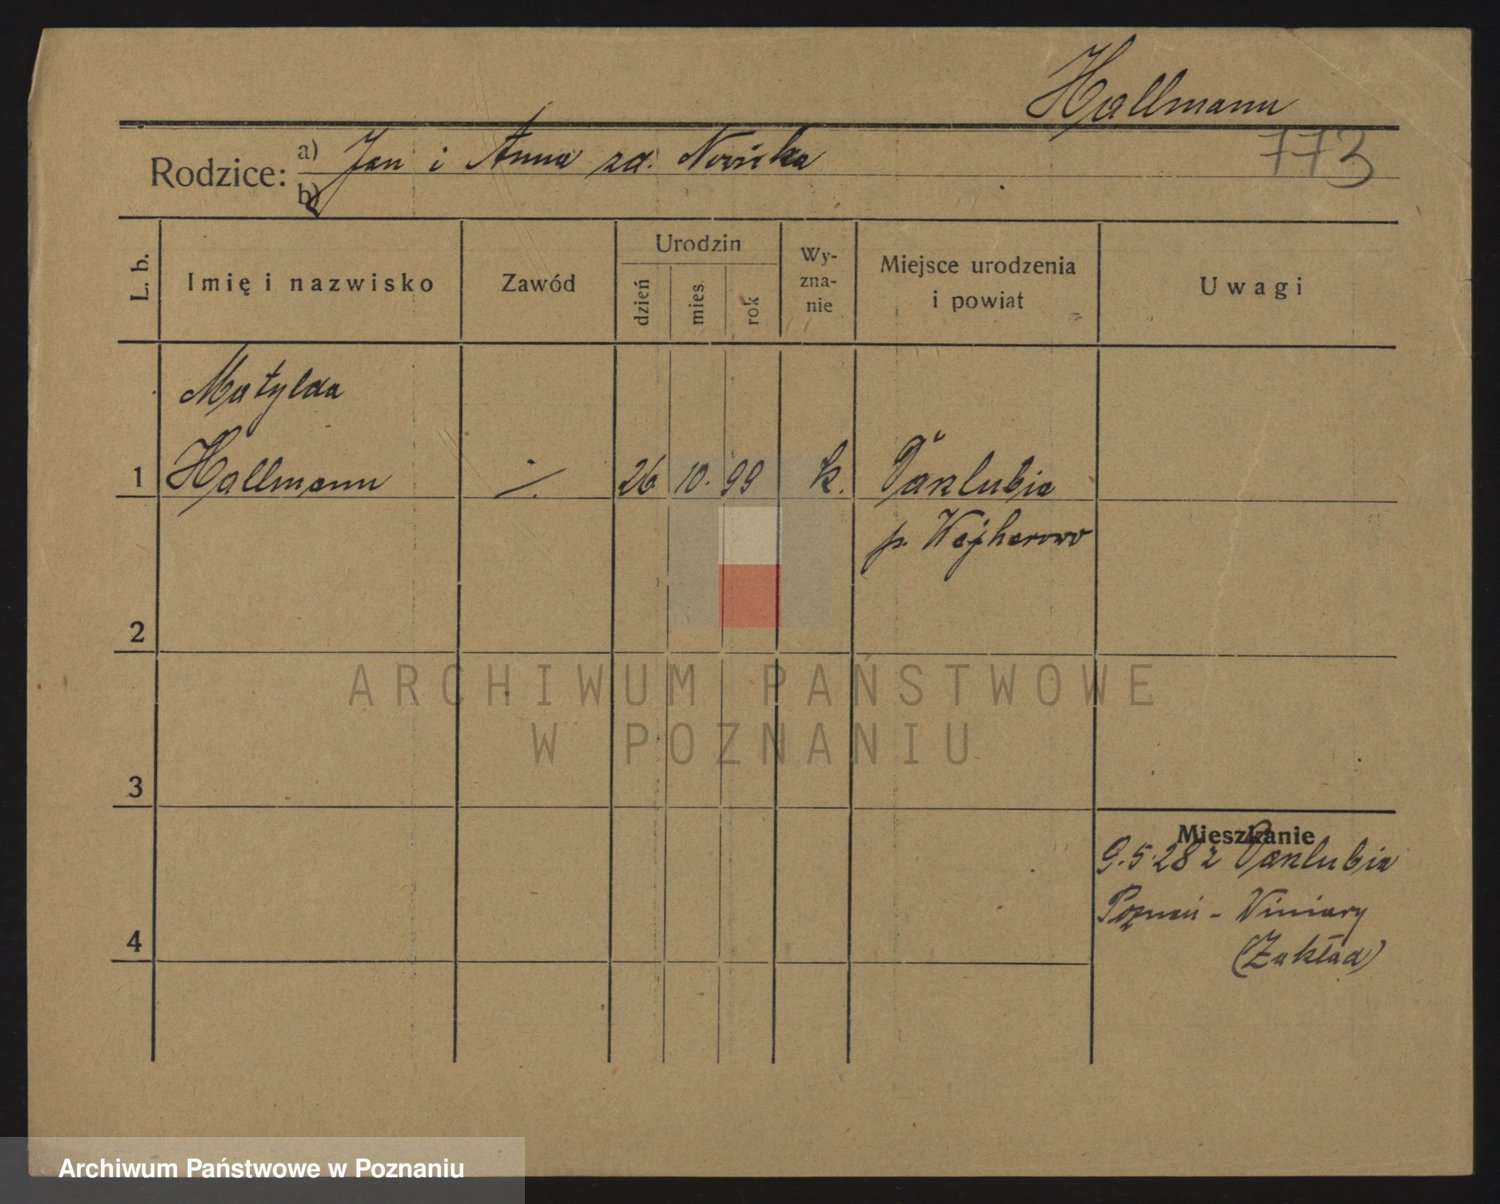 Hallmann
773
Rodzice: a) Jan i Anna zd. Nowicka
b)
L. b.
Imię i nazwisko
Zawód
Urodzin
dzień
mies.
rok
Wy-
zna-
nie
Miejsce urodzenia
i powiat
Uwagi
Matylda
1 Hallmann ./. 26 10. 99 k.
p. Wejherowo
2
ARCHIWUM PAŃSTWOWE
W POZNANIU
3
Mieszkanie
9.5.28 z
Poznań - Winiary
4
(Zakład)
Archiwum Państwowe w Poznaniu